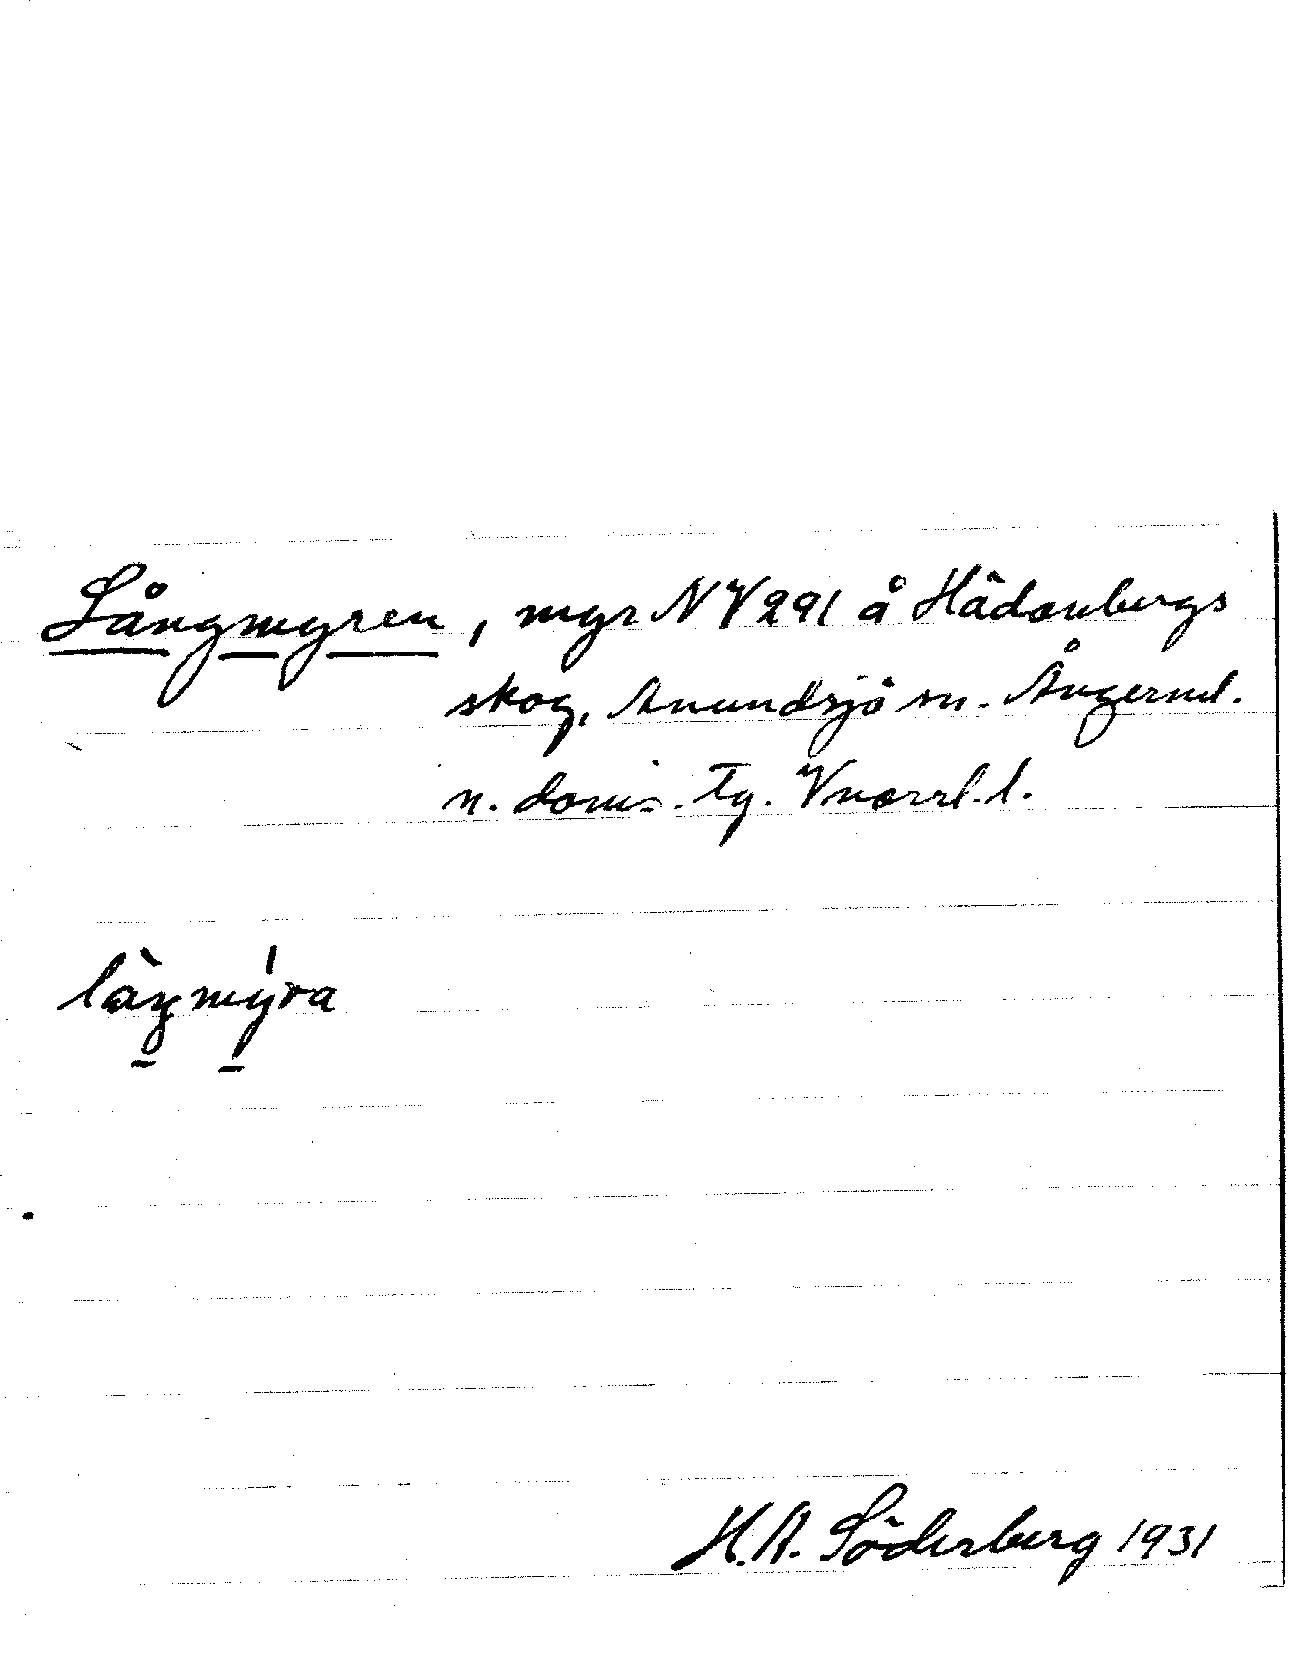 Långmyren, myr NV 291 å Hädanbergs
skog, Anundsjö sn. Ångerml.
n. doms. Tg. Vnorrl. l.
làŋmýra
H. A. Söderberg 1931